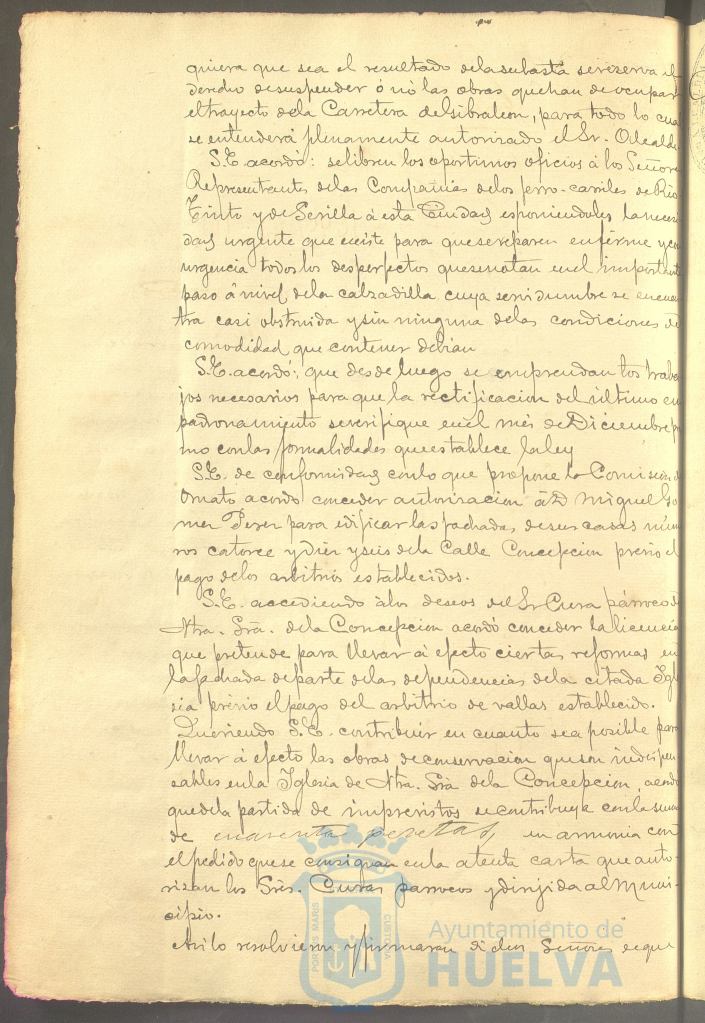 quiera que sea el resultado dela subasta sereserva el
derecho desuspender ó nó las obras quehan deocupar
eltrayecto dela Carretera deGibraleon, para todo lo cua
se entenderá plenamente autorizado el Sr. Alcalde
S.E. acordó: selibren los oportunos oficios á los Señore
Representantes delas Compañias delos ferro-carriles de Rio
Tinto y de Sevilla á esta Ciudad esponiendoles lanecesi
dad urgente que existe para quesereparen enfirme y con
urgencia todos los desperfectos quesenotan enel important
paso á nivel dela calzadilla cuya servidumbre se encuen
tra casi obstruida y sin ninguna delas condiciones de
comodidad que contener debian
S.E. acordó: que desde luego se emprendan los traba
jos necesarios para que la rectificacion del último em
padronamiento severifique enel més de Diciembre
mo conlas formalidades queestablece laley
S.E. de conformidad conlo que propone la Comision d
Ornato acordó conceder autorizacion á D. Miguel Go
mez Perez para edificar las fachadas desus casas núm
ros catorce y diez y seis dela Calle Concepcion previo el
pago delos arbitrios establecidos.
S.E. accediendo álos deseos del Sr Cura párroco d
Ntra. Sra. dela Concepcion acordó conceder la licencia
que pretende para llevar á efecto ciertas reformas en
lafachada departe delas dependencias dela citada Igle
sia previo el pago del arbitrio de vallas establecido.
Queriendo S.E. contribuir en cuanto sea posible para
llevar á efecto las obras deconservacion queson indispen
sables enla Iglesia de Ntra. Sra dela Concepcion, acordó
quedela partida de imprevistos secontribuya conla suma
de cuarenta pesetas, en armonia con
elpedido quese consignan enla atenta carta que auto-
rizan los Sres. Curas parrocos y dirijida al Muni-
cipio.
Asi lo resolvieron y firmaran dichos Señores deque
PORTUS MARIS
CUSTODIA
Ayuntamiento de
HUELVA